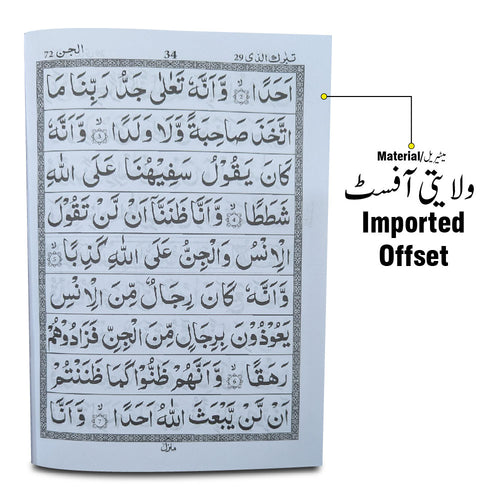 تبٰرك الذى 29
34
الجن 72
اَحَدًا ۙ﴿2﴾ وَّاَنَّهٗ تَعٰلٰى جَدُّ رَبِّنَا مَا
اتَّخَذَ صَاحِبَةً وَّلَا وَلَدًا ۙ﴿3﴾ وَّاَنَّهٗ
كَانَ يَقُوْلُ سَفِيْهُنَا عَلَى اللّٰهِ
شَطَطًا ۙ﴿4﴾ وَّاَنَّا ظَنَنَّاۤ اَنْ لَّنْ تَقُوْلَ
الْاِنْسُ وَالْجِنُّ عَلَى اللّٰهِ كَذِبًا ۙ﴿5﴾
وَّاَنَّهٗ كَانَ رِجَالٌ مِّنَ الْاِنْسِ
يَعُوْذُوْنَ بِرِجَالٍ مِّنَ الْجِنِّ فَزَادُوْهُمْ
رَهَقًا ۙ﴿6﴾ وَّاَنَّهُمْ ظَنُّوْا كَمَا ظَنَنْتُمْ
اَنْ لَّنْ يَّبْعَثَ اللّٰهُ اَحَدًا ۙ﴿7﴾ وَّاَنَّا
منزل
Material/میٹیریل
ولایتی آفسٹ
Imported
Offset